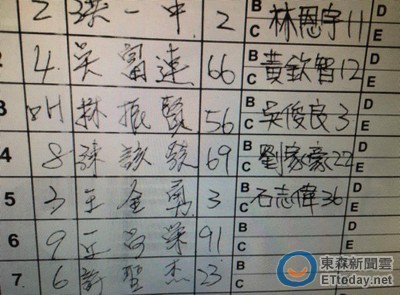 2 一 中 2 B C 林恩宇 11 D E
2 4 吳 富 連 66 B C 黃欽智 12 D E
3 DH 林 振 賢 56 B C 吳俊良 3 D E
4 8 69 B C 劉家豪 22 D E
5 3 王 金 勇 3 B C 石志偉 36 D E
6 9 91 B C D
7 6 聖 杰 23 B
東森新聞雲
ETtoday.net